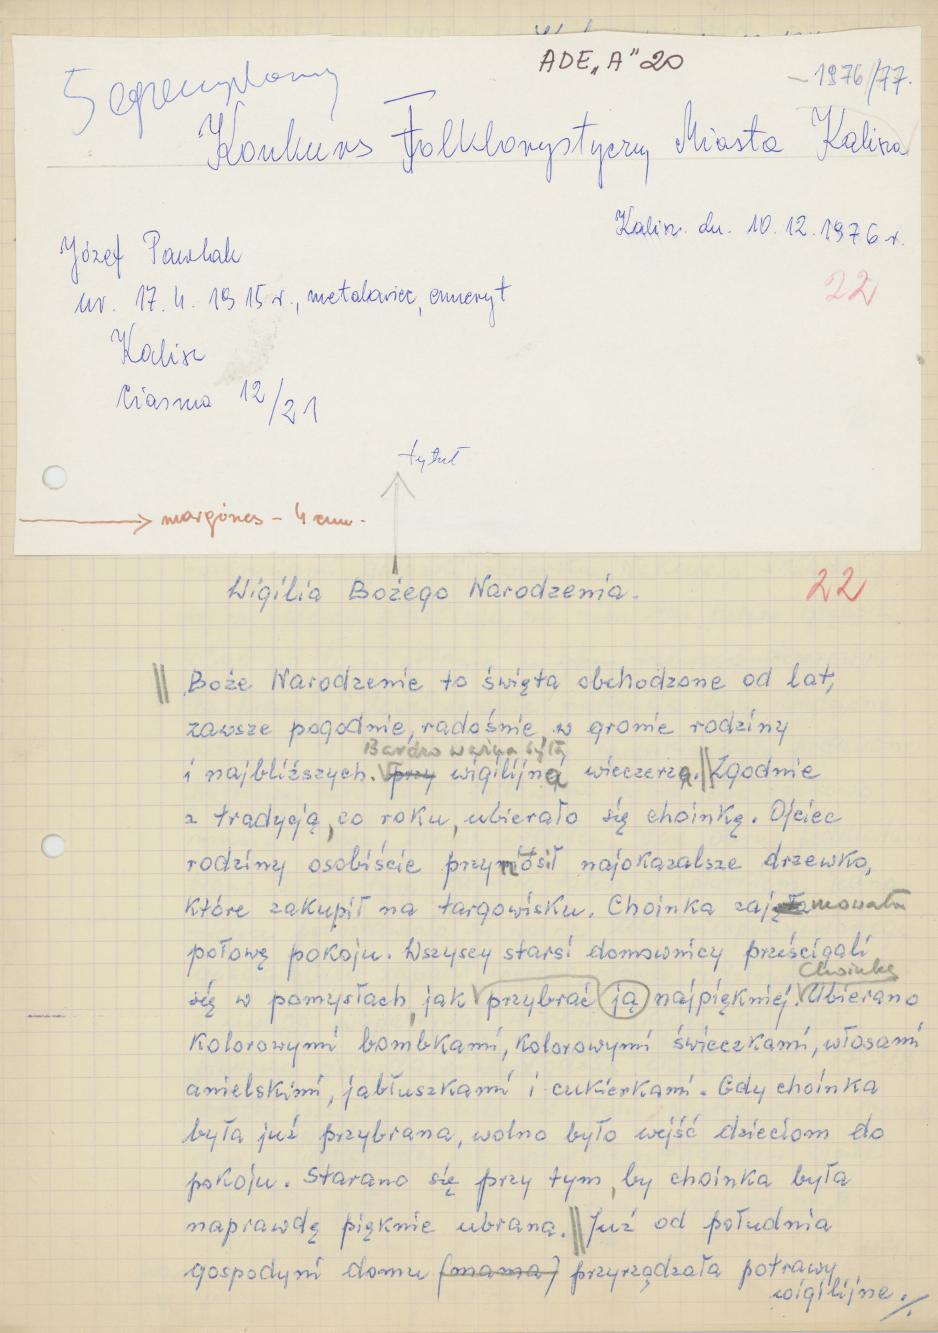 ADE„A" 20
– 1976/77.
5 egzemplarzy
Konkurs Folklorystyczny Miasta Kalisza
Kalisz. dn. 10.12.1976 r.
Józef Pawlak
ur. 17.4.1915 r., metalowiec, emeryt
22
Kalisz
Ciasna 12/21
tytuł
margines – 4 cm.
Wigilia Bożego Narodzenia.
22
Boże Narodzenie to święta obchodzone od lat,
zawsze pogodnie, radośnie, w gronie rodziny
Bardzo ważna była
i najbliższych. przy wigilijną wieczerzą. Zgodnie
z tradycją, co roku, ubierało się choinkę. Ojciec
rodziny osobiście przynosił najokazalsze drzewko,
które zakupił na targowisku. Choinka zajmowała
połowę pokoju. Wszyscy starsi domownicy prześcigali
Choinkę
się w pomysłach, jak przybrać ją najpiękniej. Ubierano
kolorowymi bombkami, kolorowymi świeczkami, włosami
anielskimi, jabłuszkami i cukierkami. Gdy choinka
była już przybrana, wolno było wejść dzieciom do
pokoju. Starano się przy tym, by choinka była
naprawdę pięknie ubrana. Już od południa
gospodyni domu (mama) przyrządzała potrawy
wigilijne.